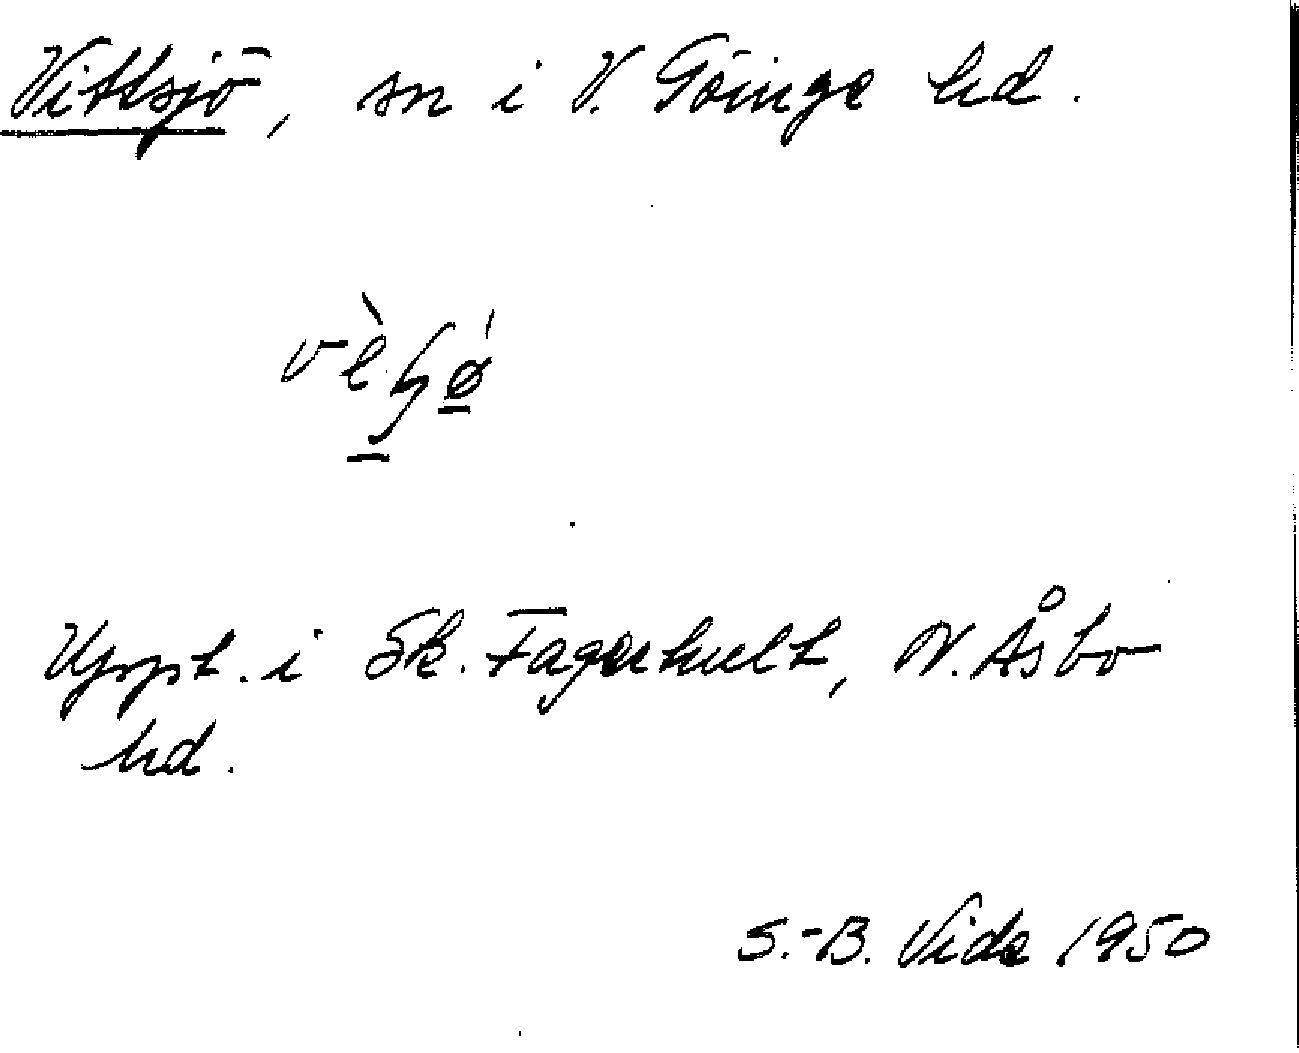 Vittsjö, sn i V. Göinge hd.
Uppt. i Sk. Fagerhult, N. Åsbo
hd.
S.-B. Vide 1950